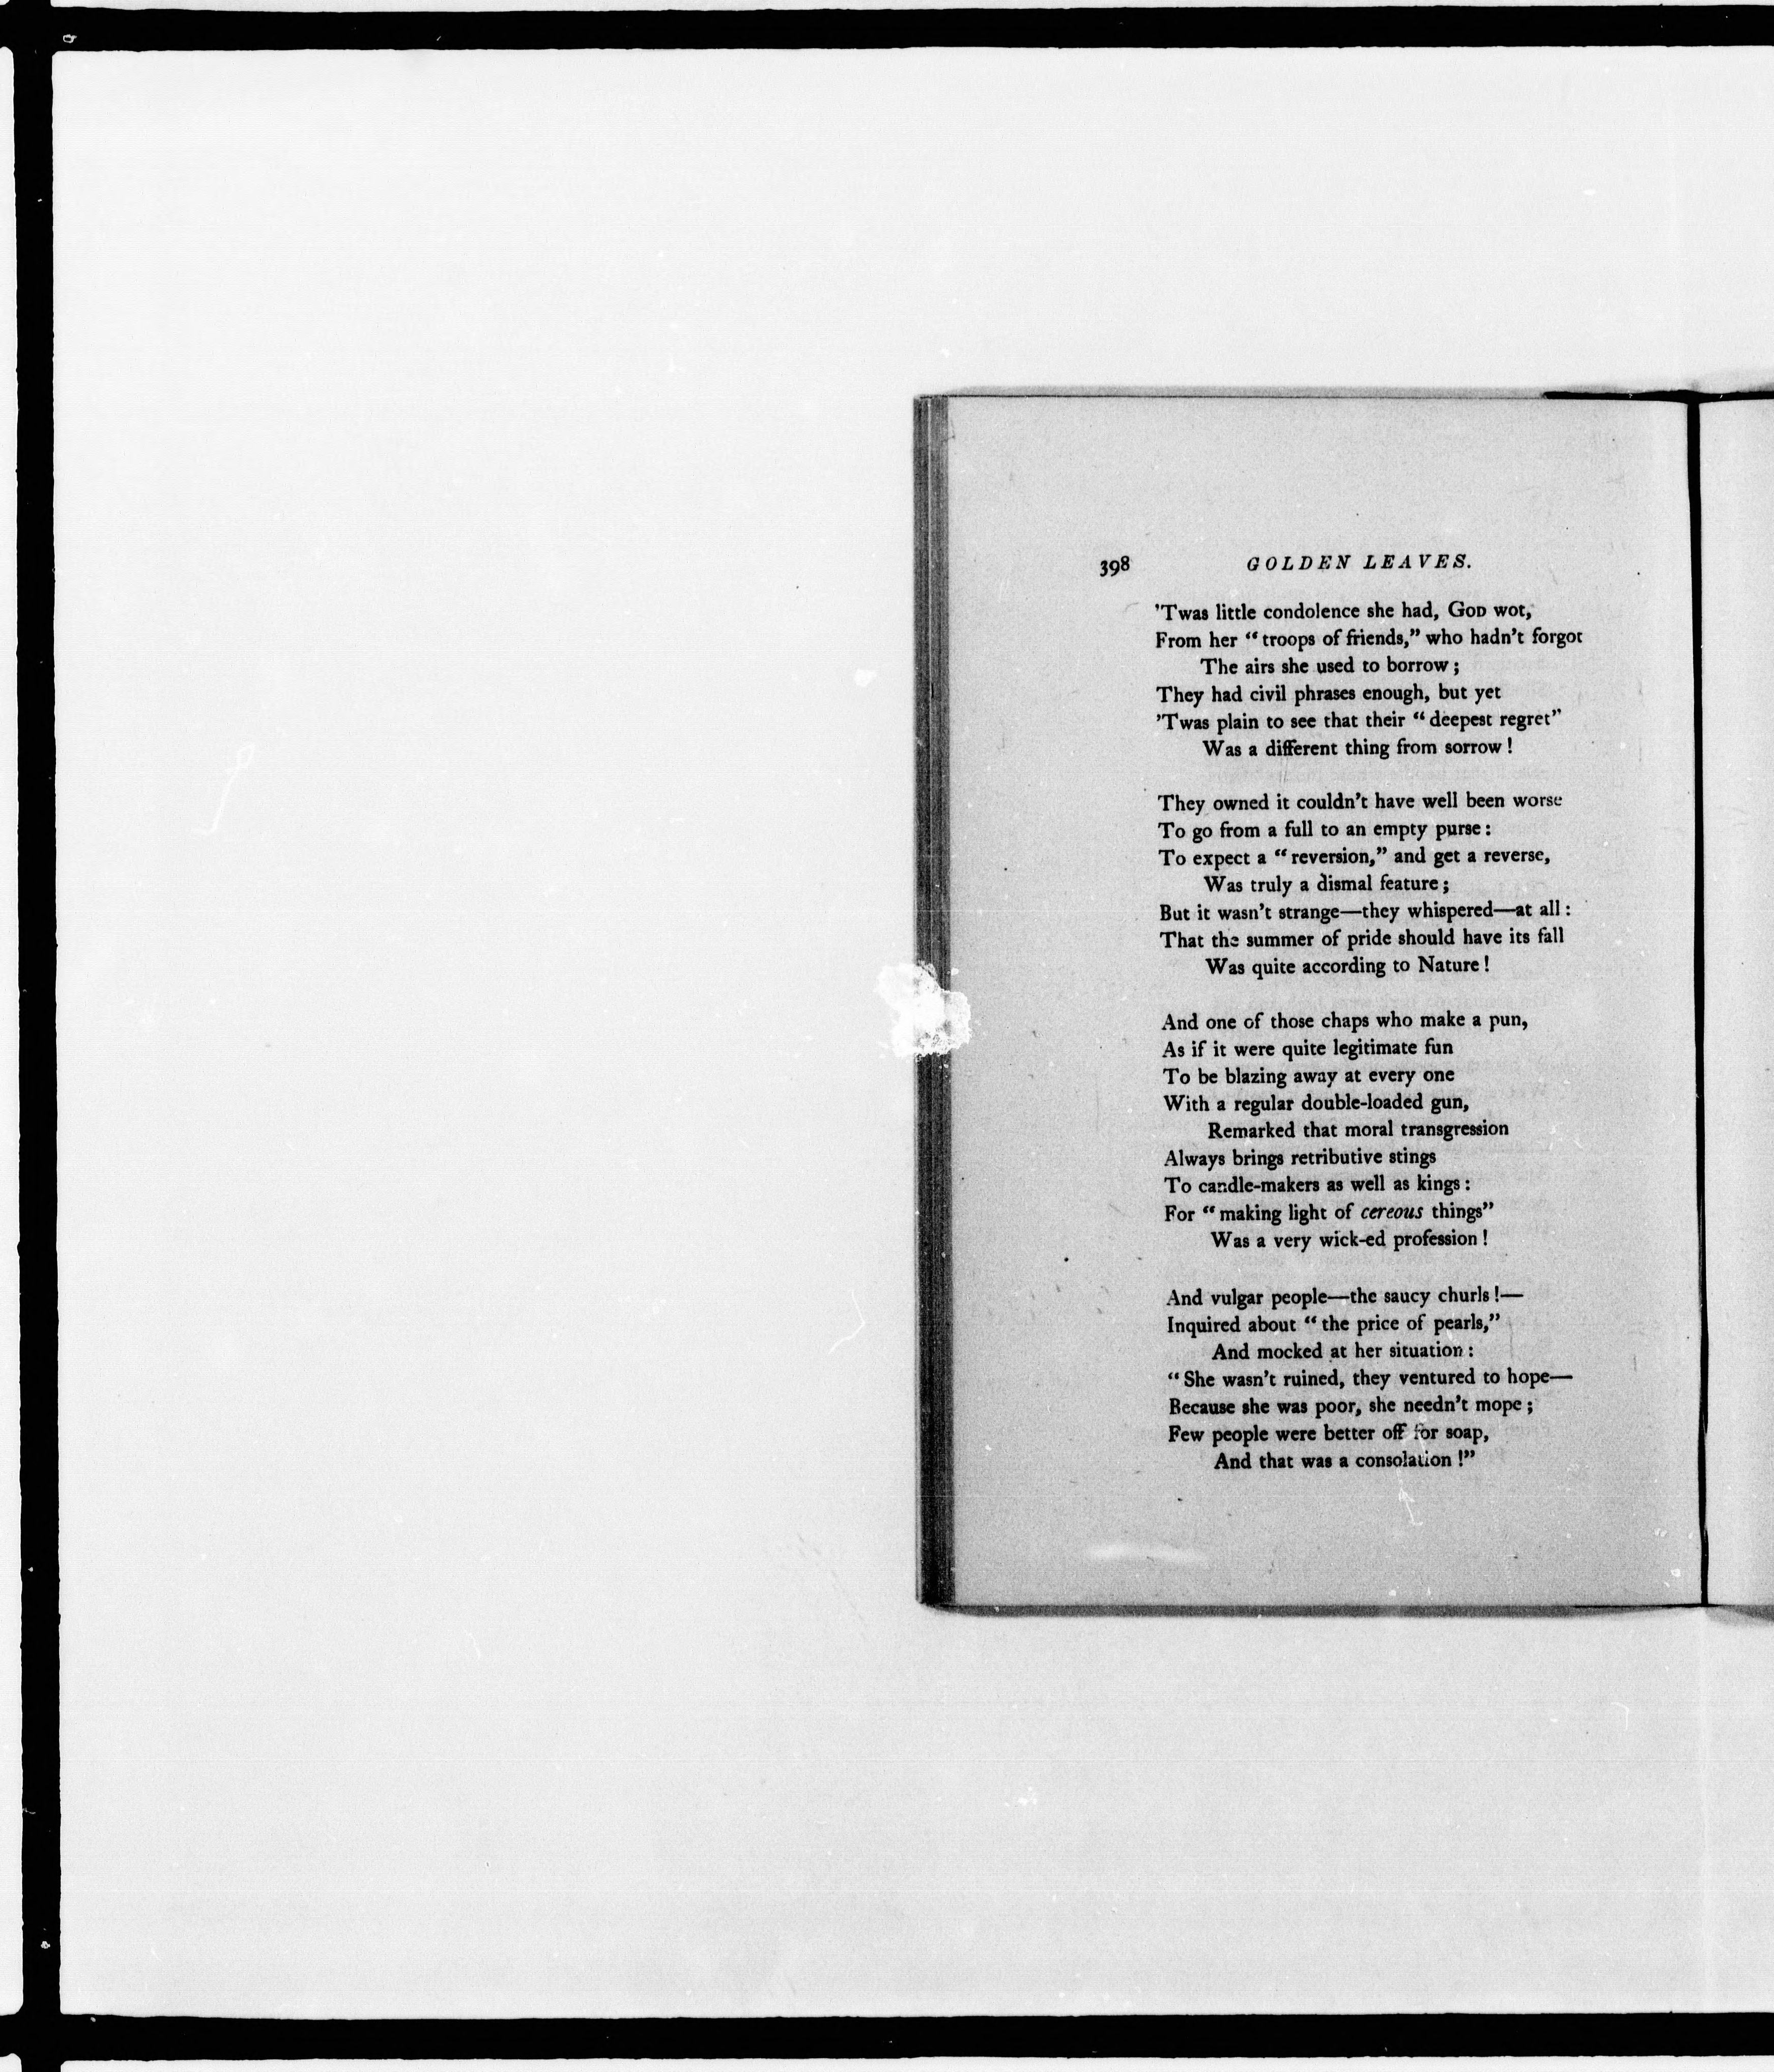 398 GOLDEN LEAVES.
’Twas little condolence she had, GOD wot,
From her “troops of friends,” who hadn’t forgot
The airs she used to borrow;
They had civil phrases enough, but yet
’Twas plain to see that their “deepest regret”
Was a different thing from sorrow!
They owned it couldn’t have well been worse
To go from a full to an empty purse:
To expect a “reversion,” and get a reverse,
Was truly a dismal feature;
But it wasn’t strange—they whispered—at all:
That the summer of pride should have its fall
Was quite according to Nature!
And one of those chaps who make a pun,
As if it were quite legitimate fun
To be blazing away at every one
With a regular double-loaded gun,
Remarked that moral transgression
Always brings retributive stings
To candle-makers as well as kings:
For “making light of cereous things”
Was a very wick-ed profession!
And vulgar people—the saucy churls!—
Inquired about “the price of pearls,”
And mocked at her situation:
“She wasn’t ruined, they ventured to hope—
Because she was poor, she needn’t mope;
Few people were better off for soap,
And that was a consolation!”